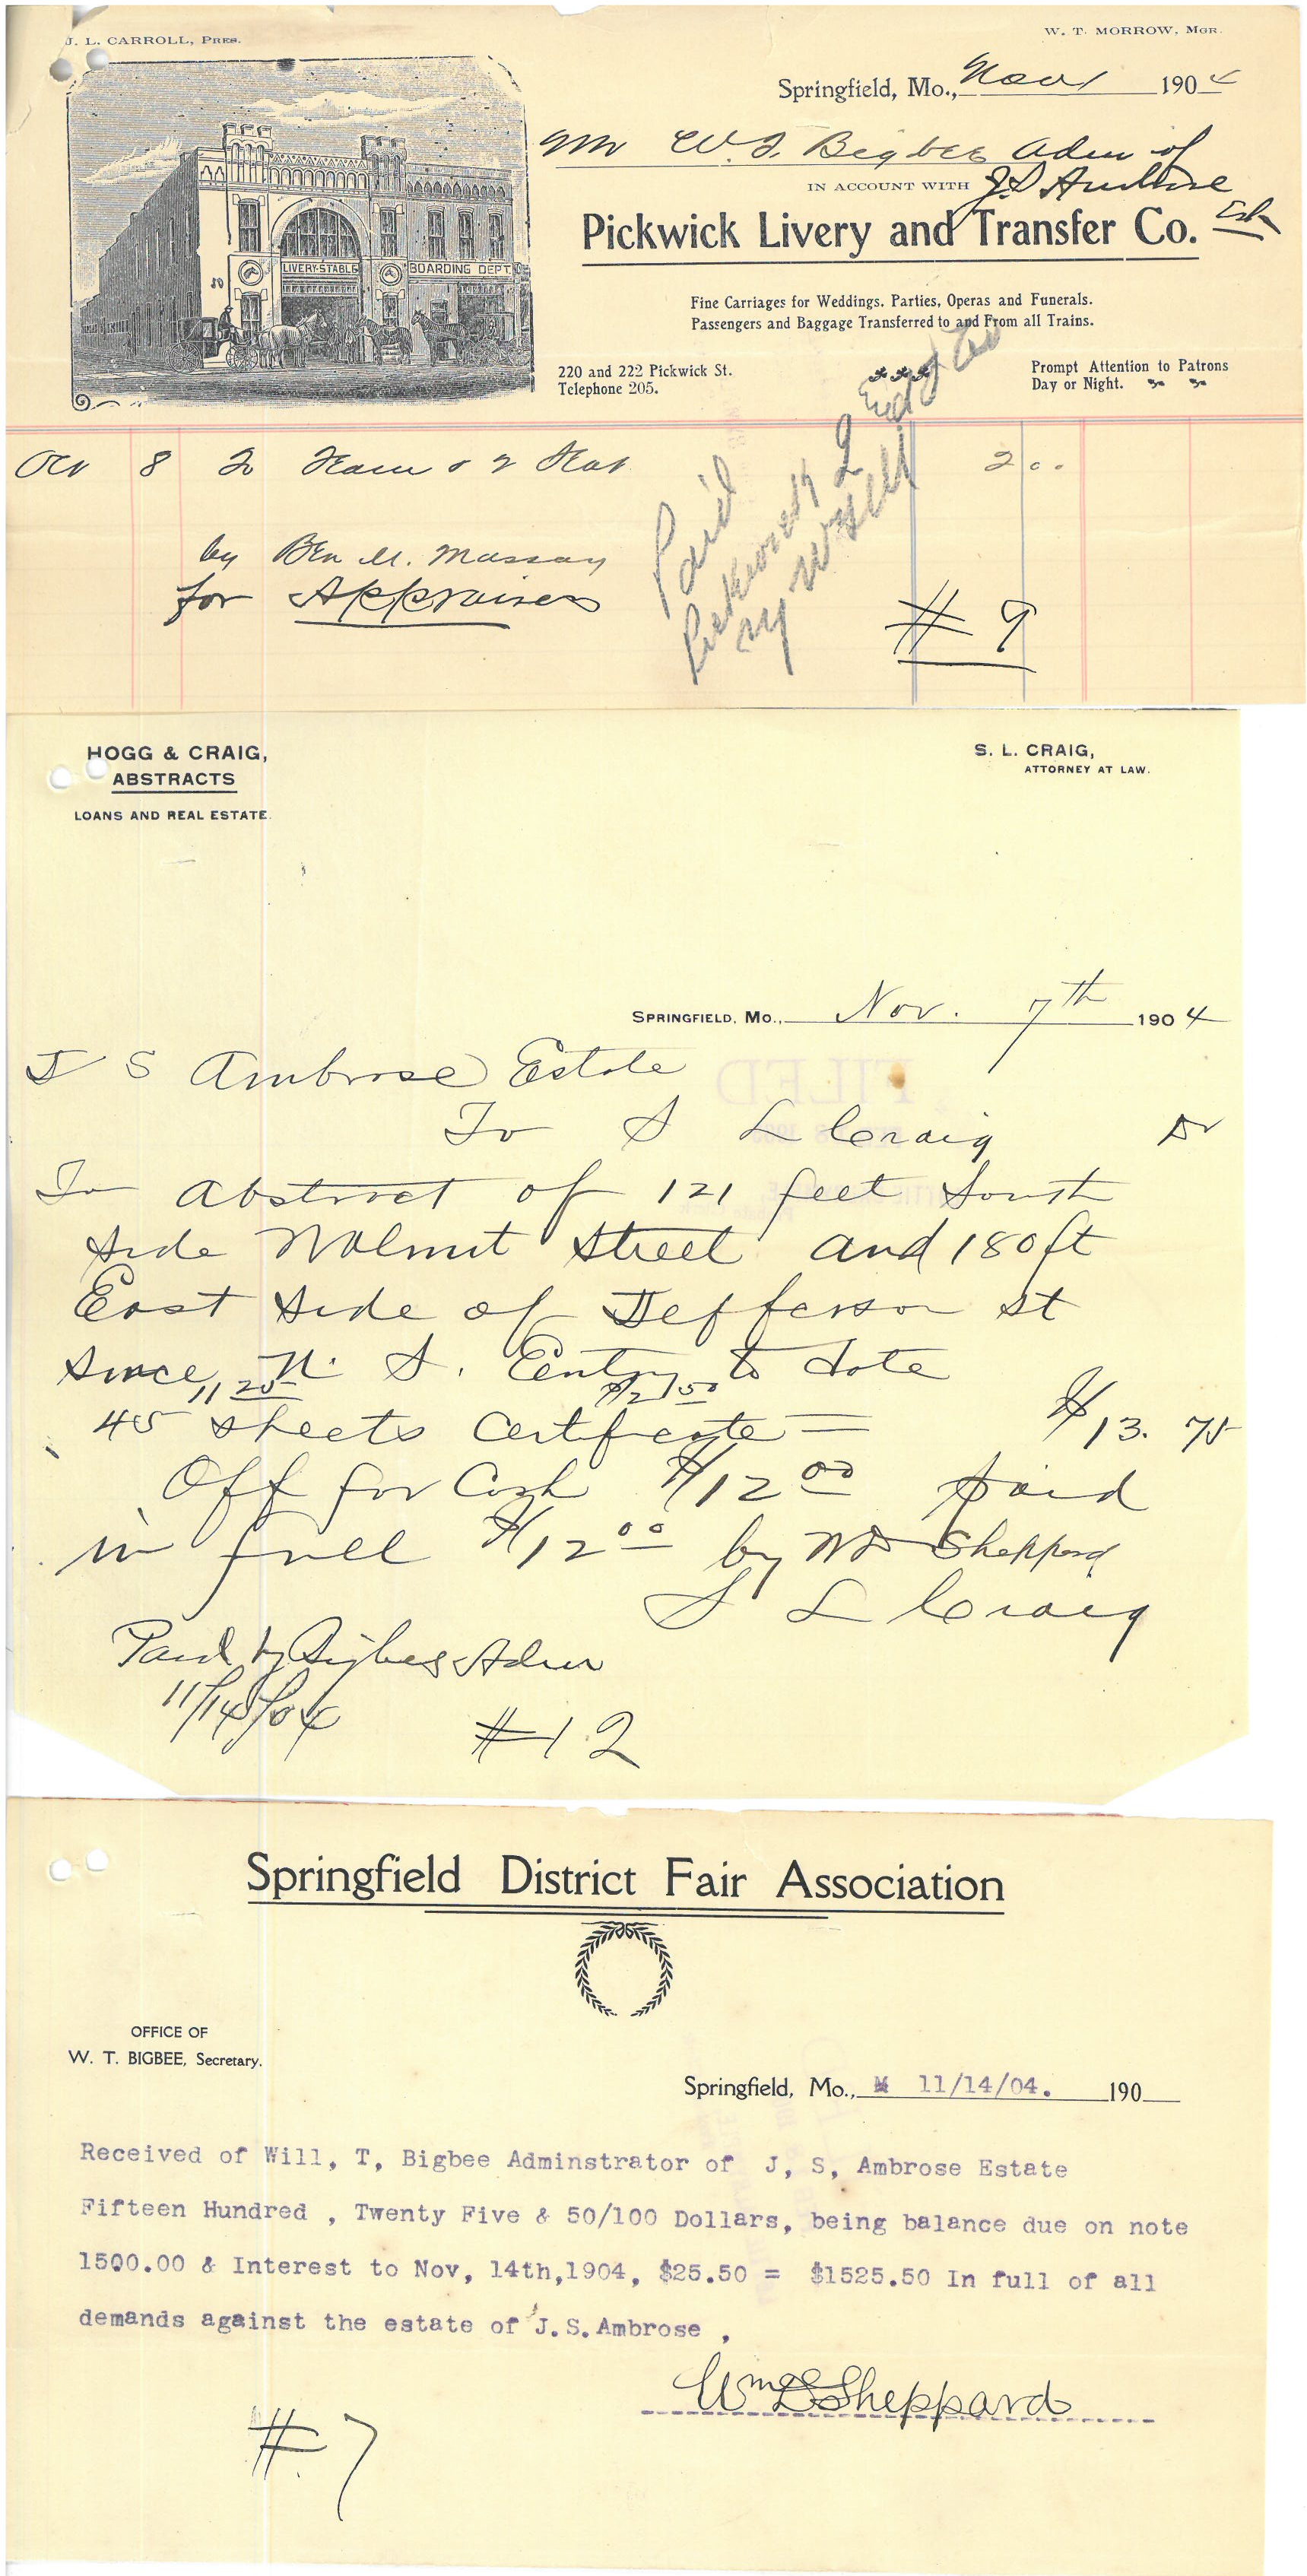 J. L. CARROLL, PRES.
W. T. MORROW, MGR.
Springfield, Mo., Nov 1904
Mr W. T. Bigbee Adm of
IN ACCOUNT WITH J S Ambrose Est
Pickwick Livery and Transfer Co.
LIVERY-STABLE
BOARDING DEPT.
Fine Carriages for Weddings. Parties, Operas and Funerals.
Passengers and Baggage Transferred to and From all Trains.
220 and 222 Pickwick St.
Telephone 205.
Prompt Attention to Patrons
Day or Night.
Oct 8 To Team 2 00
by Ben M. Massey
for Appraisers
Paid
# 9
HOGG & CRAIG,
ABSTRACTS
LOANS AND REAL ESTATE.
S. L. CRAIG,
ATTORNEY AT LAW.
SPRINGFIELD, MO., Nov. 7th 1904
FILED
J S Ambrose Estate
To S L Craig Dr
To Abstract of 121 feet South
side Walnut Street and 180 ft
East side of Jefferson st
since Entry to date
11 25 $2 50
45 sheets Certificate = $13. 75
Off for Cash $12 00 paid
in full $12 00 by WD Sheppard
S L Craig
Paid by Bigbee Admr
11/14/04
#12
Springfield District Fair Association
OFFICE OF
W. T. BIGBEE, Secretary.
Springfield, Mo., 11/14/04. 190
Received of Will, T, Bigbee Adminstrator of J, S, Ambrose Estate
Fifteen Hundred , Twenty Five & 50/100 Dollars, being balance due on note
1500.00 & Interest to Nov, 14th,1904, $25.50 = $1525.50 In full of all
demands against the estate of J.S.Ambrose ,
Wm D Sheppard
# 7